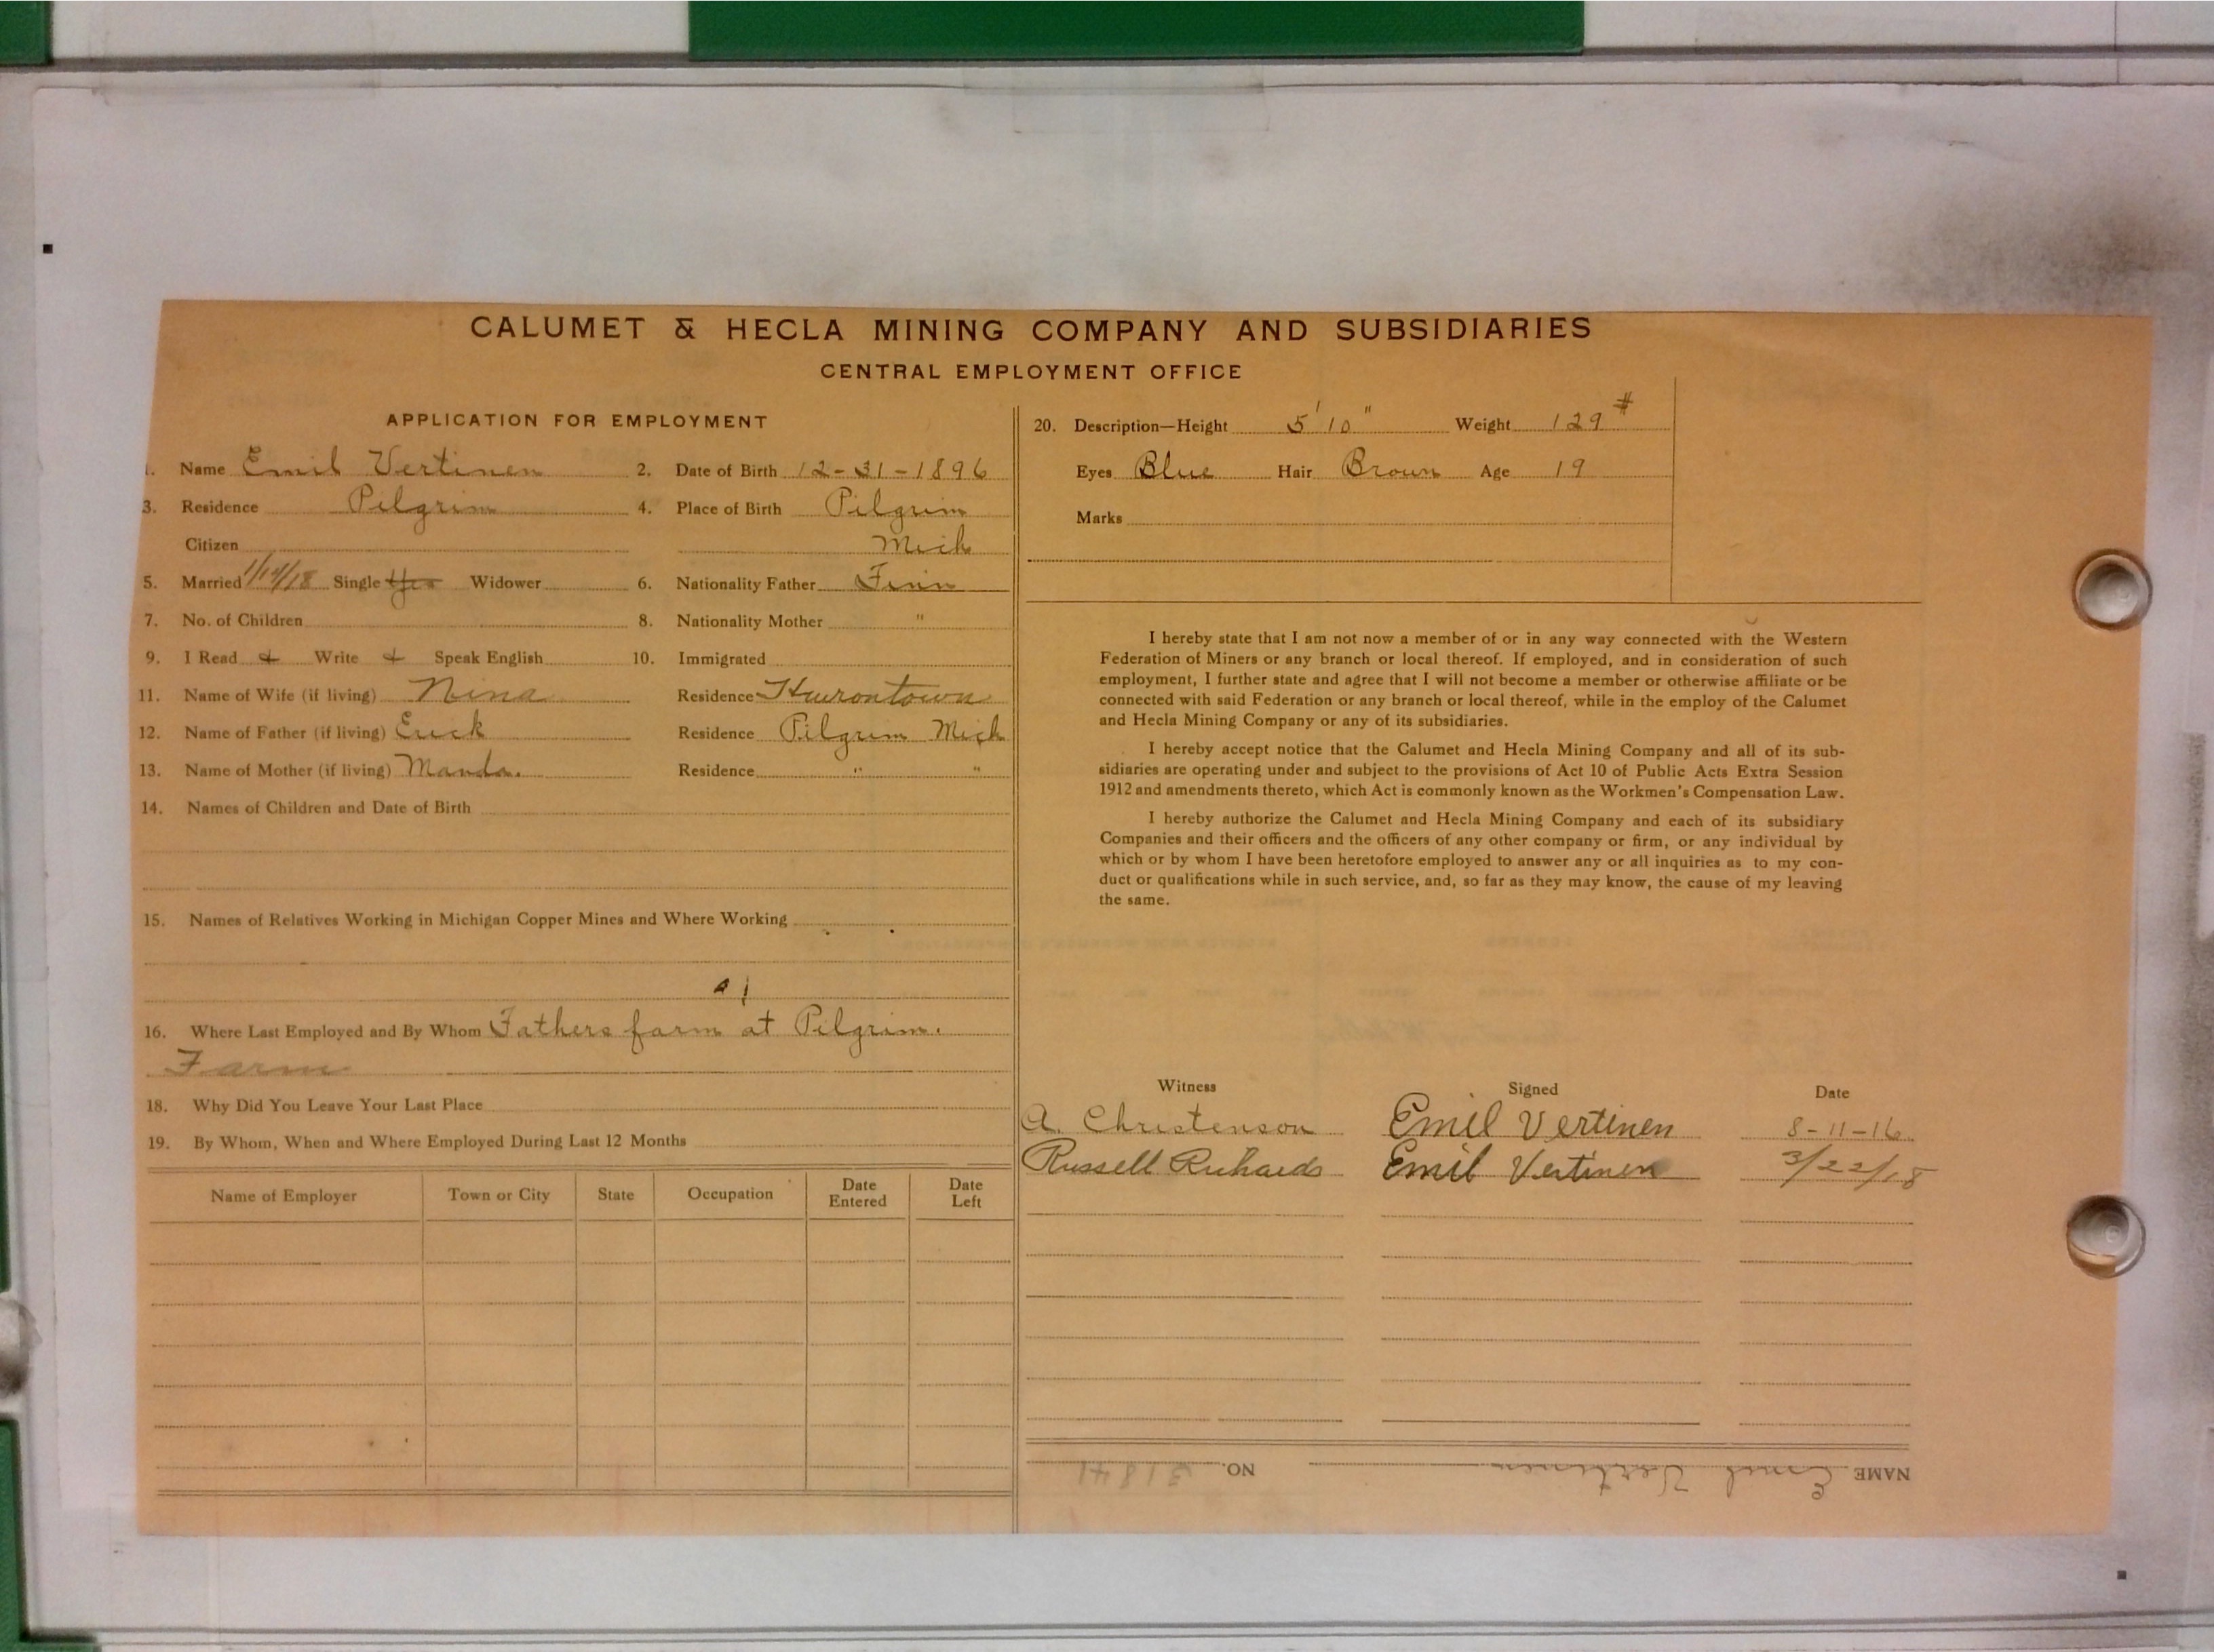 CALUMET & HECLA MINING COMPANY AND SUBSIDIARIES
CENTRAL EMPLOYMENT OFFICE
APPLICATION FOR EMPLOYMENT
1. Name Emil Vertinen 2. Date of Birth 12-31-1896
3. Residence Pilgrim 4. Place of Birth Pilgrim
Citizen Mich
5. Married 1/14/18 Single Yes Widower 6. Nationality Father Finn
7. No. of Children 8. Nationality Mother "
9. I Read & Write & Speak English 10. Immigrated
11. Name of Wife (if living) Nina Residence Hurontown
12. Name of Father (if living) Erick Residence Pilgrim Mich
13. Name of Mother (if living) Manda. Residence " "
14. Names of Children and Date of Birth
15. Names of Relatives Working in Michigan Copper Mines and Where Working
16. Where Last Employed and By Whom Fathers farm at Pilgrim.
Farm
18. Why Did You Leave Your Last Place
19. By Whom, When and Where Employed During Last 12 Months
Name of Employer Town or City State Occupation Date Entered Date Left
20. Description—Height 5' 10" Weight 129 #
Eyes Blue Hair Brown Age 19
Marks
I hereby state that I am not now a member of or in any way connected with the Western
Federation of Miners or any branch or local thereof. If employed, and in consideration of such
employment, I further state and agree that I will not become a member or otherwise affiliate or be
connected with said Federation or any branch or local thereof, while in the employ of the Calumet
and Hecla Mining Company or any of its subsidiaries.
I hereby accept notice that the Calumet and Hecla Mining Company and all of its sub-
sidiaries are operating under and subject to the provisions of Act 10 of Public Acts Extra Session
1912 and amendments thereto, which Act is commonly known as the Workmen's Compensation Law.
I hereby authorize the Calumet and Hecla Mining Company and each of its subsidiary
Companies and their officers and the officers of any other company or firm, or any individual by
which or by whom I have been heretofore employed to answer any or all inquiries as to my con-
duct or qualifications while in such service, and, so far as they may know, the cause of my leaving
the same.
Witness Signed Date
A. Christenson Emil Vertinen 8-11-16
Russell Richards Emil Vertinen 3/22/18
NAME Emil Vertinen NO. 31841